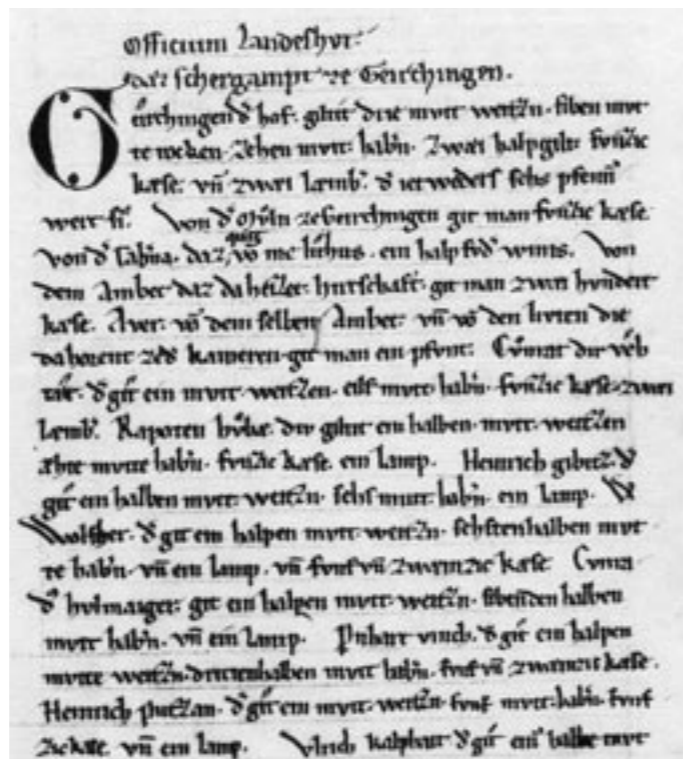 Officium Landeshvt
daz schergampt ze Geirchingen.
Geirchingen d hof. giltet drie mvtt weitzn. siben mvt
te rocken. Zehen mvtt habn. Zwai halpgiltɪ fvnfzic
kæse. vn zwai læmb. d ietweders sehs pfenn
wert si. Von d Mvln ze Geirchingen git man fvnfzic kæse
von d Tabna. daz ein halp fvd wins. Von
dem Amber daz da heizet hvtschaft. git man zwai hvndert
kæse. Aver vo dem selben Amber vn vo den livten die
da horent zed kameren git man ein pfvnt.
d git ein mvtt weitzen. eilf mvtt habn. fvnfzic kæse. zwai
læmb. Rapoten hvbe. div giltet ein halben mvtt weitzen
æhte mvtte habn. fvnfzic kæse. ein lamp. Heinrich d
git ein halben mvtt weitzn. sehs mvtt habn. ein lamp.
d git ein halpen mvtt weitzn. sehstenhalben mvt
te habn. vn ein lamp. vn fvnf vn zwainzic kæse Cvnrat
d hvlmaiger git ein halpen mvtt weitzn. sibenden halben
mvtt habn. vn ein lamp. d git ein halpen
mvtte weitzn. drittenhalben mvtt habn. fvnf vn zwainzic kæse.
Heinrich d git ein mvtt weitzn. fvnf mvtt habn. fvnf
zic kæse. vn ein lamp. Vlrich d git ein halbe mvt